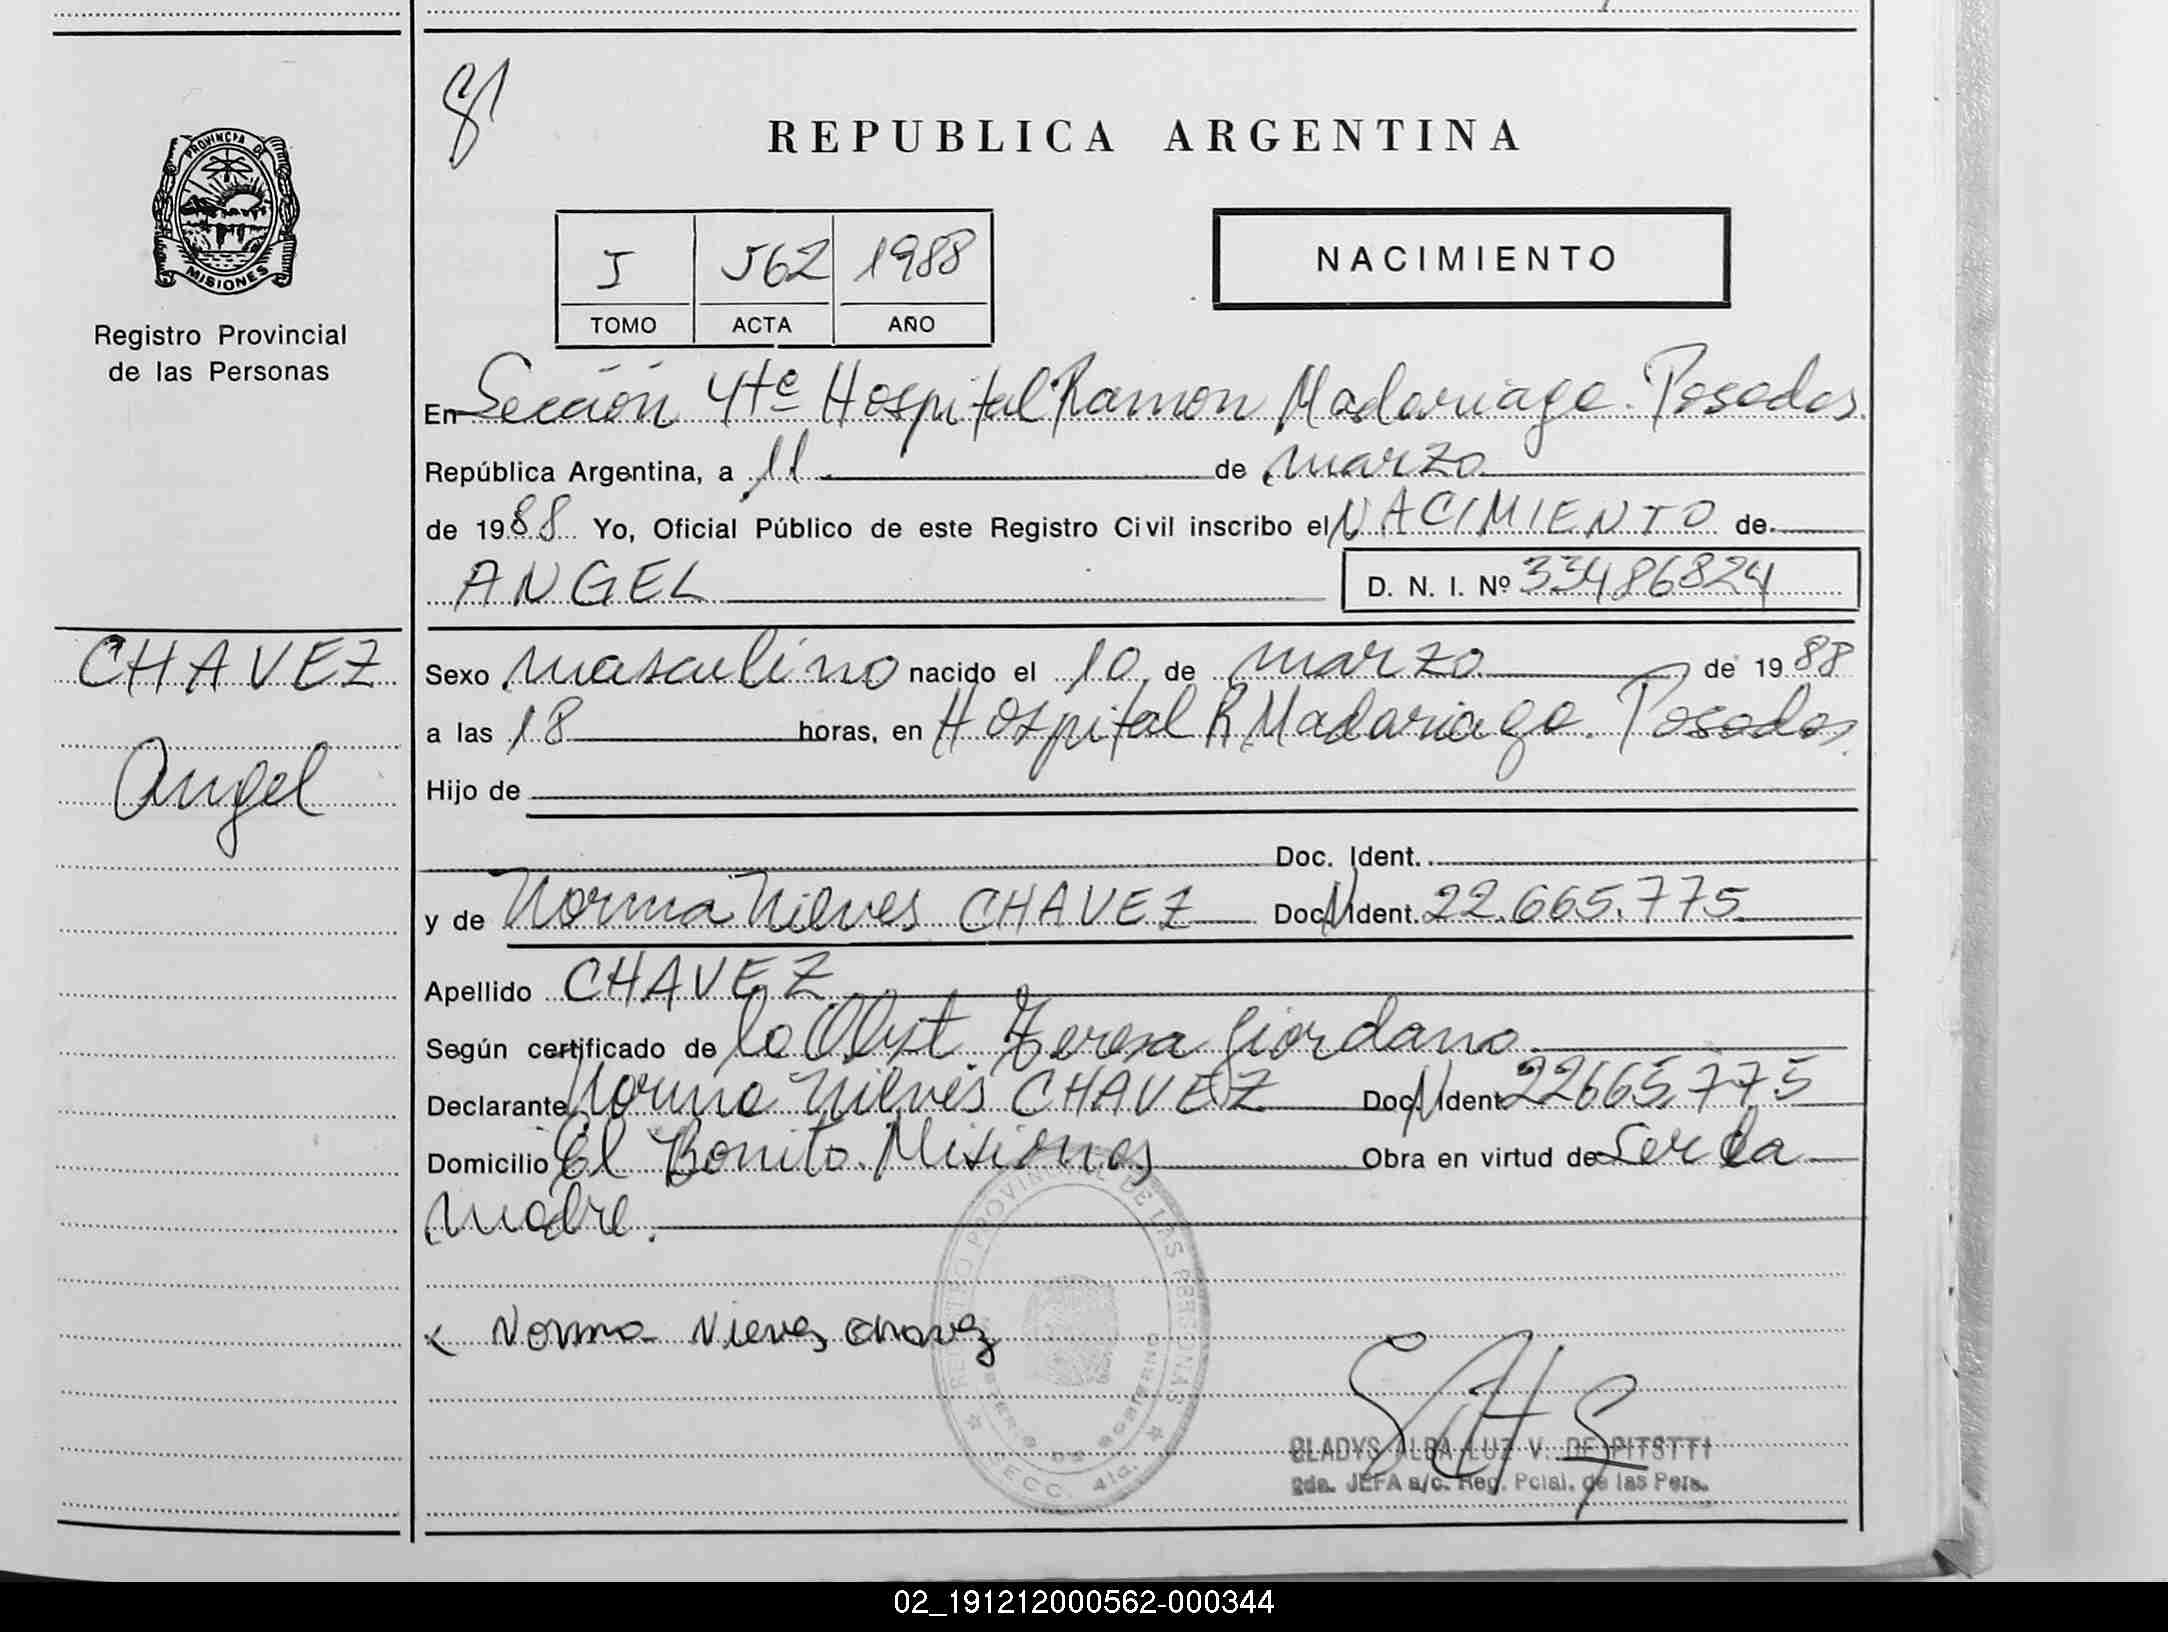 REPUBLICA ARGENTINA
PROVINCIA DE MISIONES
Registro Provincial
de las Personas
NACIMIENTO
I 562 1988
TOMO ACTA AÑO
En Sección 4ta Hospital Ramon Madariaga. Posadas.
República Argentina, a 11 de marzo
de 1988 Yo, Oficial Público de este Registro Civil inscribo el NACIMIENTO de
ANGEL D. N. I. Nº 33486824
CHAVEZ
Angel
Sexo masculino nacido el 10 de marzo de 1988
a las 18 horas, en Hospital R. Madariaga. Posadas.
Hijo de
Doc. Ident.
y de Norma Nieves CHAVEZ Doc. N Ident. 22.665.775
Apellido CHAVEZ
Según certificado de la Obst. Teresa Giordano
Declarante Norma Nieves CHAVEZ Doc. N Ident 22665.775
Domicilio El Bonito. Misiones Obra en virtud de ser la
madre.
x Norma Nieves chavez
REGISTRO PROVINCIAL DE LAS PERSONAS
SECC. 4ta.
GLADYS ALBA LUZ V. DE PITSTTI
2da. JEFA a/c. Reg. Pcial. de las Pers.
02_191212000562-000344